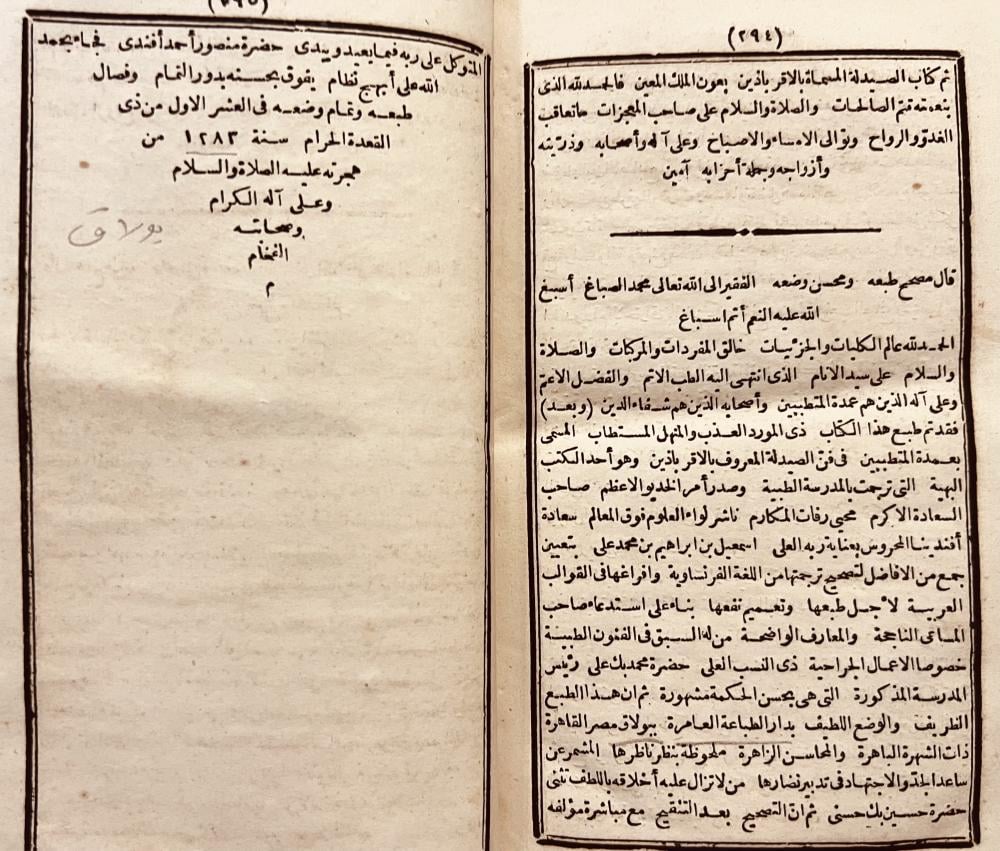 (٢٩٤)
تم كتاب الصيدلة المسماة بالاقرباذين بعون الملك المعين فالحمد لله الذى
بنعمته تتم الصالحات والصلاة والسلام على صاحب المعجزات ماتعاقب
الغدو والرواح وتوالى الامساء والاصباح وعلى آله وأصحابه وذريته
وأزواجه وجملة أحزابه آمين
قال مصحح طبعه ومحسن وضعه الفقير الى الله تعالى محمد الصباغ أسبغ
الله عليه النعم أتم اسباغ
الحمد لله عالم الكليات والجزئيات خالق المفردات والمركبات والصلاة
والسلام على سيد الانام الذى انتهى اليه الطب الاتم والفضل الاعم
وعلى آله الذين هم عمدة المتطببين وأصحابه الذين هم شفاء الدين (وبعد)
فقد تم طبع هذا الكتاب ذى المورد العذب والمنهل المستطاب المسمى
بعمدة المتطببين فى فن الصيدلة المعروف بالاقرباذين وهو أحد الكتب
البهية التى ترجمت بالمدرسة الطبية وصدر أمر الخديو الاعظم صاحب
السعادة الاكرم محيى رفات المكارم ناشر لواء العلوم فوق المعالم سعادة
أفندينا المحروس بعناية ربه العلى اسمعيل بن ابراهيم بن محمد على بتعيين
جمع من الافاضل لتصحيح ترجمتها من اللغة الفرنساوية وافراغها فى القوالب
العربية لاجل طبعها وتعميم نفعها بناء على استدعاء صاحب
المساعى الناجحة والمعارف الواضحة من له السبق فى الفنون الطبية
خصوصا الاعمال الجراحية ذى النسب العلى حضرة محمد بك على رئيس
المدرسة المذكورة التى هى بحسن الحكمة مشهورة ثم ان هذا الطبع
الظريف والوضع اللطيف بدار الطباعة العامرة ببولاق مصر القاهرة
ذات الشهرة الباهرة والمحاسن الزاهرة ملحوظة بنظر ناظرها المشمر عن
ساعد الجد والاجتهاد فى تدبير نضارها من لاتزال عليه أخلاقه باللطف تثنى
حضرة حسين بك حسنى ثم ان التصحيح بعد التنقيح مع مباشرة مؤلفه
(٢٩٥)
المتوكل على ربه فيما يعيد ويبدى حضرة منصور أحمد أفندى فجاء بحمد
الله على أبهج نظام يفوق بحسنه بدور التمام وفصال
طبعه وتمام وضعه فى العشر الاول من ذى
القعدة الحرام سنة ١٢٨٣ من
هجرته عليه الصلاة والسلام
وعلى آله الكرام
وصحابته
الفخام
م
بولاق